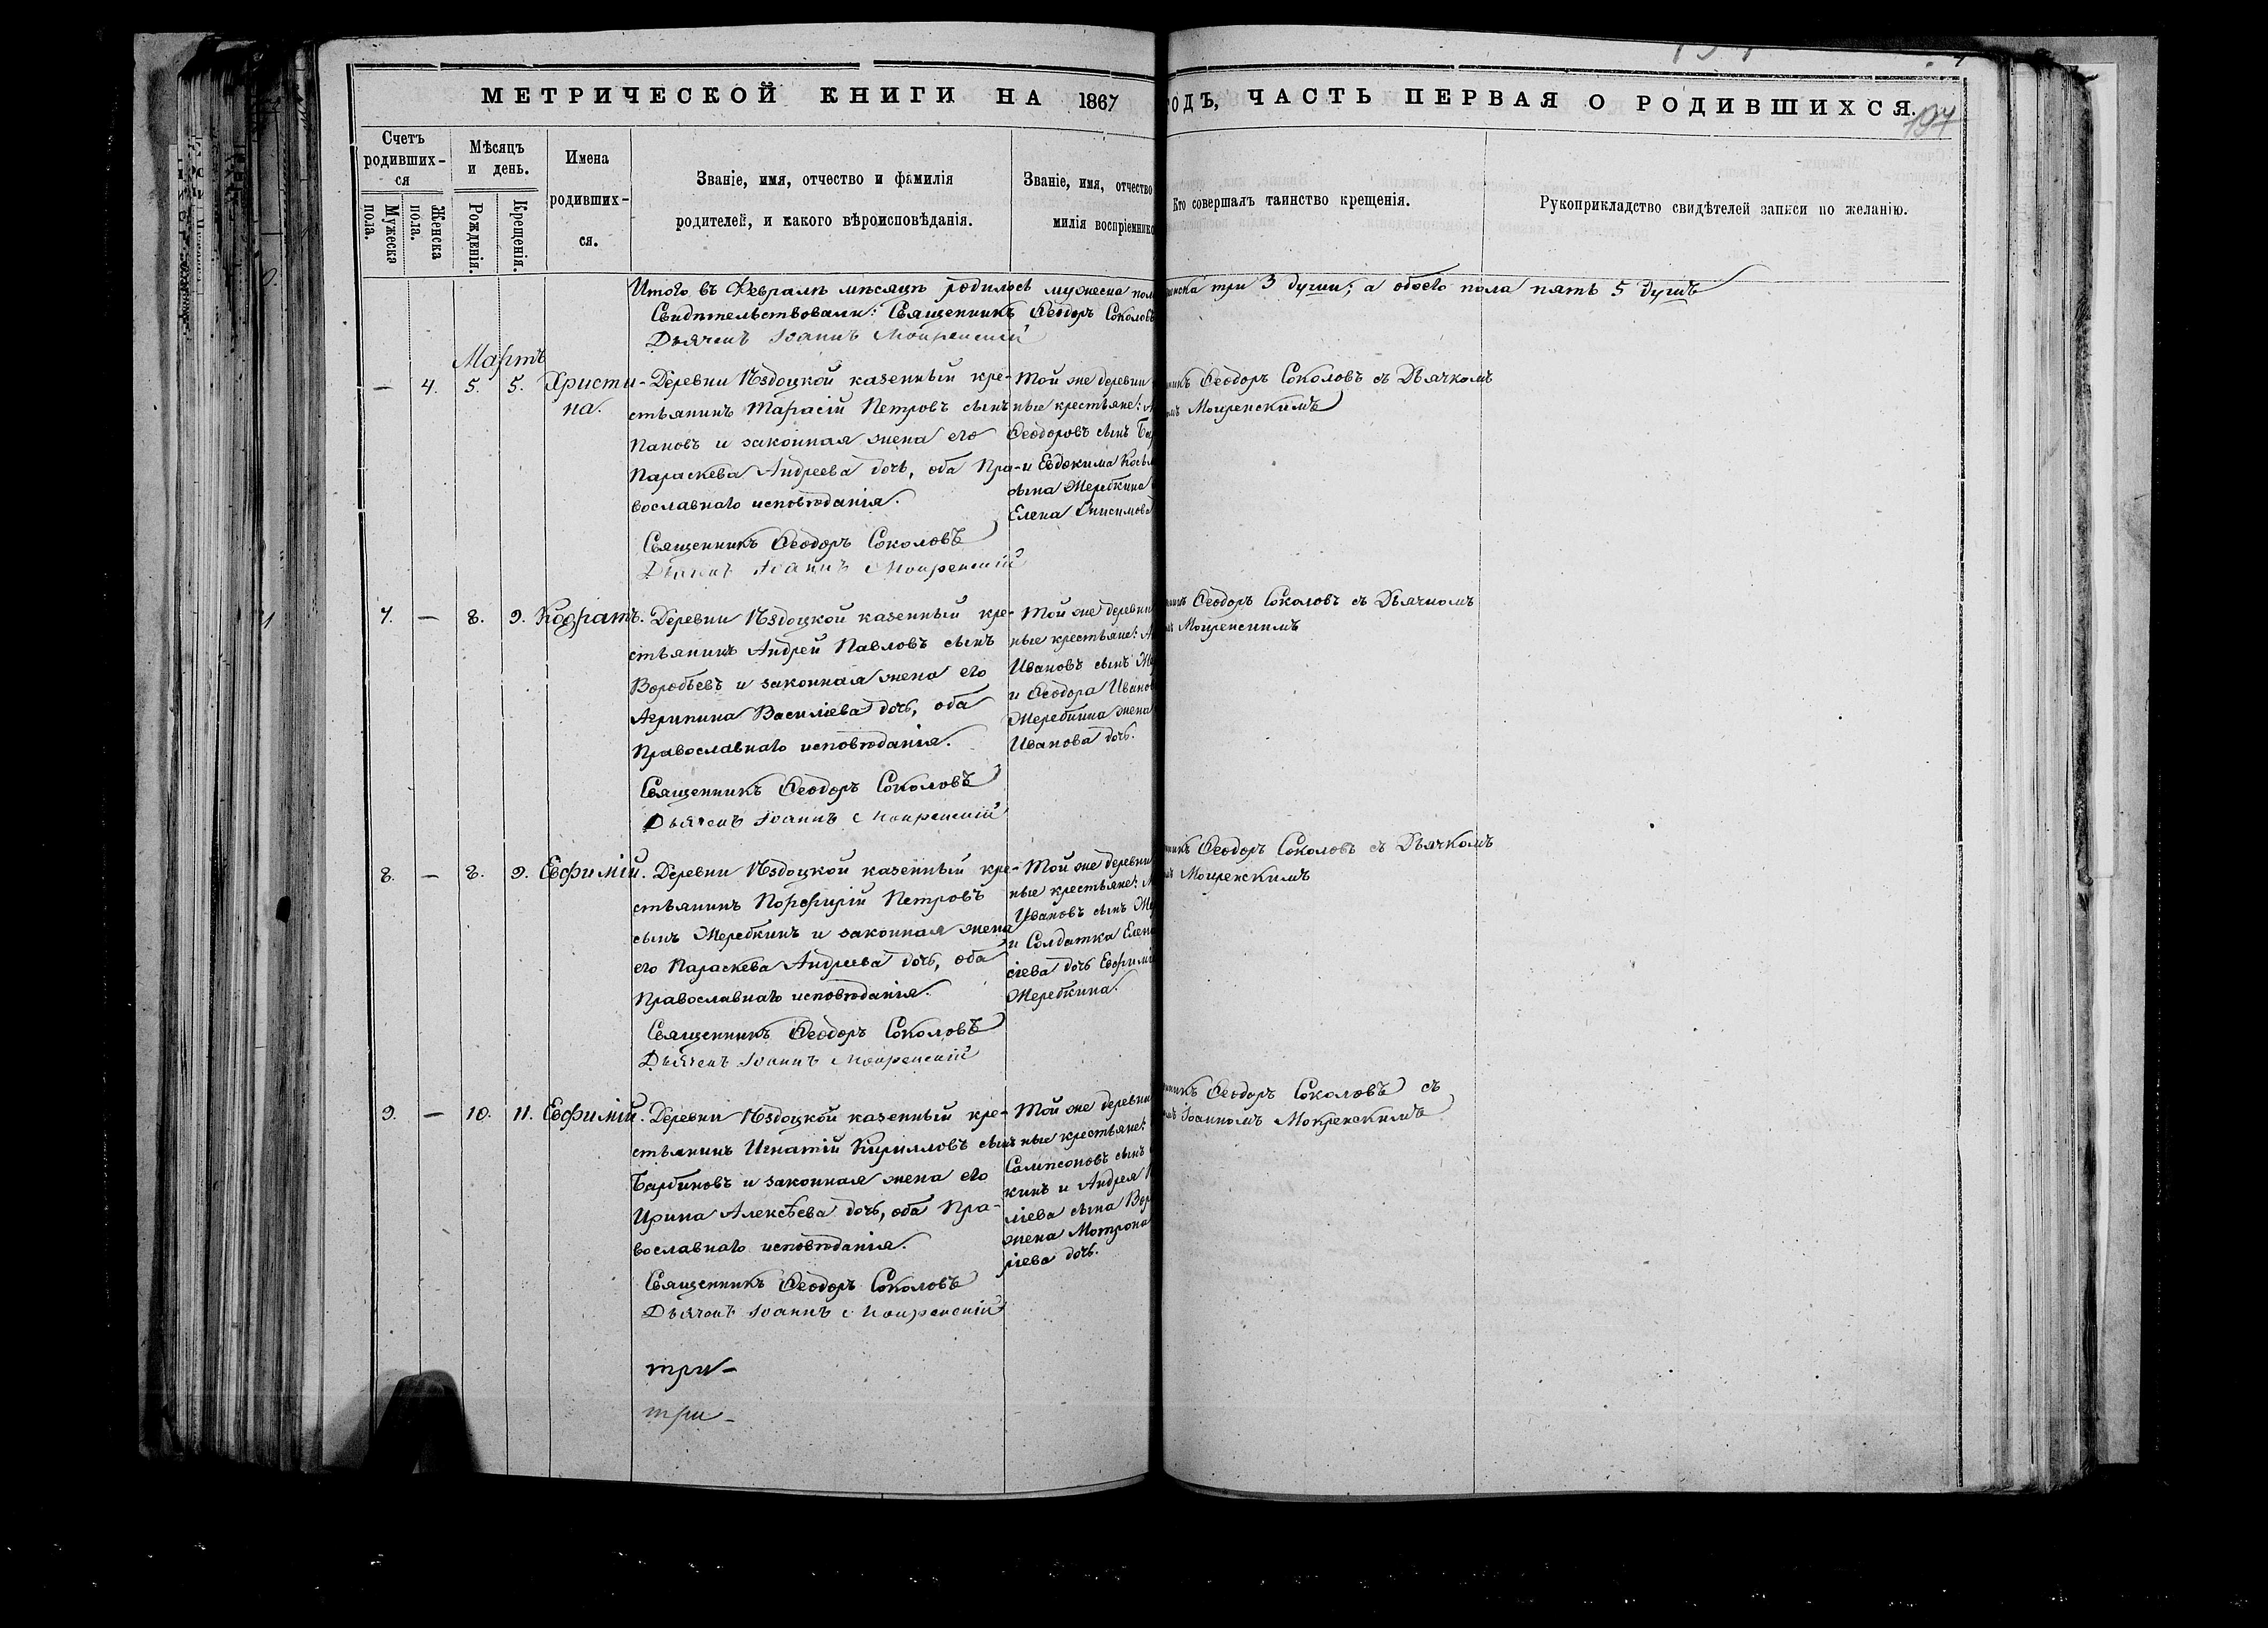 МЕТРИЧЕСКОЙ КНИГИ НА 1867
ОДЪ, ЧАСТЬ ПЕРВАЯ О РОДИВШИХСЯ.
197
Счетъ
родивших-
ся
Мужеска
пола.
Женска
пола.
Мѣсяцъ
и день.
Рожденія.
Крещенія.
Имена
родивших-
ся.
Званіе, имя, отчество и фамилія
родителей, и какого вѣроисповѣданія.
Званіе, имя, отчество
милія воспріемнико
Кто совершалъ таинство крещенія.
Рукоприкладство свидѣтелей записи по желанію.
Итого въ Февралѣ мѣсяцѣ родилось мужеска пол
нска три 3 души; а обоего пола пять 5 душъ
Свидѣтельствовали: Священникъ Ѳеодоръ Соколовъ
Дьячекъ Іоаннъ Мокренскій
Мартъ
— 4. 5. 5. Христи-
на.
Деревни Ѣздоцкой казенный кре-
стьянинъ Тарасій Петровъ сынъ
Пановъ и законная жена его
Параскева Андреева дочь, оба Пра-
вославнаго исповѣданія.
Священникъ Ѳеодоръ Соколовъ
Дьячекъ Іоаннъ Мокренскій
Той же деревни
ные крестьяне:
Ѳеодоровъ сынъ Бар
и Евдокима Косьм
сына Жеребкина
Елена Онисимова
никъ Ѳеодоръ Соколовъ съ Дьячкомъ
мъ Мокренскимъ
7. — 8. 9. Кодратъ.
Деревни Ѣздоцкой казенный кре-
стьянинъ Андрей Павловъ сынъ
Воробьевъ и законная жена его
Агрипина Василіева дочь, оба
Православнаго исповѣданія.
Священникъ Ѳеодоръ Соколовъ
Дьячекъ Іоаннъ Мокренскій
Той же деревни
ные крестьяне: А
Ивановъ сынъ Же
и Ѳеодора Иванов
Жеребкина жена
Иванова дочь.
никъ Ѳеодоръ Соколовъ съ Дьячкомъ
мъ Мокренскимъ
8. — 8. 9. Евфимій.
Деревни Ѣздоцкой казенный кре-
стьянинъ Порфирій Петровъ
сынъ Жеребкинъ и законная жена
его Параскева Андреева дочь, оба
Православнаго исповѣданія.
Священникъ Ѳеодоръ Соколовъ
Дьячекъ Іоаннъ Мокренскій
Той же деревни
ные крестьяне:
Ивановъ сынъ Же
и Солдатка Елен
сіева дочь Евфимі
Жеребкина.
никъ Ѳеодоръ Соколовъ съ Дьячкомъ
мъ Мокренскимъ
9. — 10. 11. Евфимій.
Деревни Ѣздоцкой казенный кре-
стьянинъ Игнатій Кирилловъ сынъ
Барбиновъ и законная жена его
Ирина Алексѣева дочь, оба Пра-
вославнаго исповѣданія.
Священникъ Ѳеодоръ Соколовъ
Дьячекъ Іоаннъ Мокренскій
Той же деревни
ные крестьяне:
Сампсоновъ сынъ
кинъ и Андрея
ліева сына Вор
жена Мотрона
ріева дочь.
никъ Ѳеодоръ Соколовъ съ
мъ Іоанномъ Мокренскимъ
три —
три —